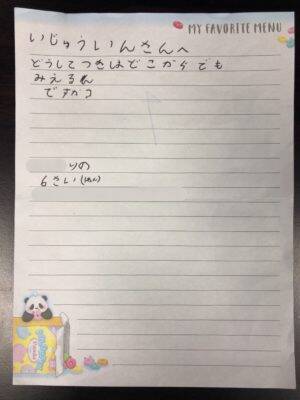 MY FAVORITE MENU
いじゅういんさんへ
どうしてつきはどこからでも
みえるん
ですか
りの
6さい